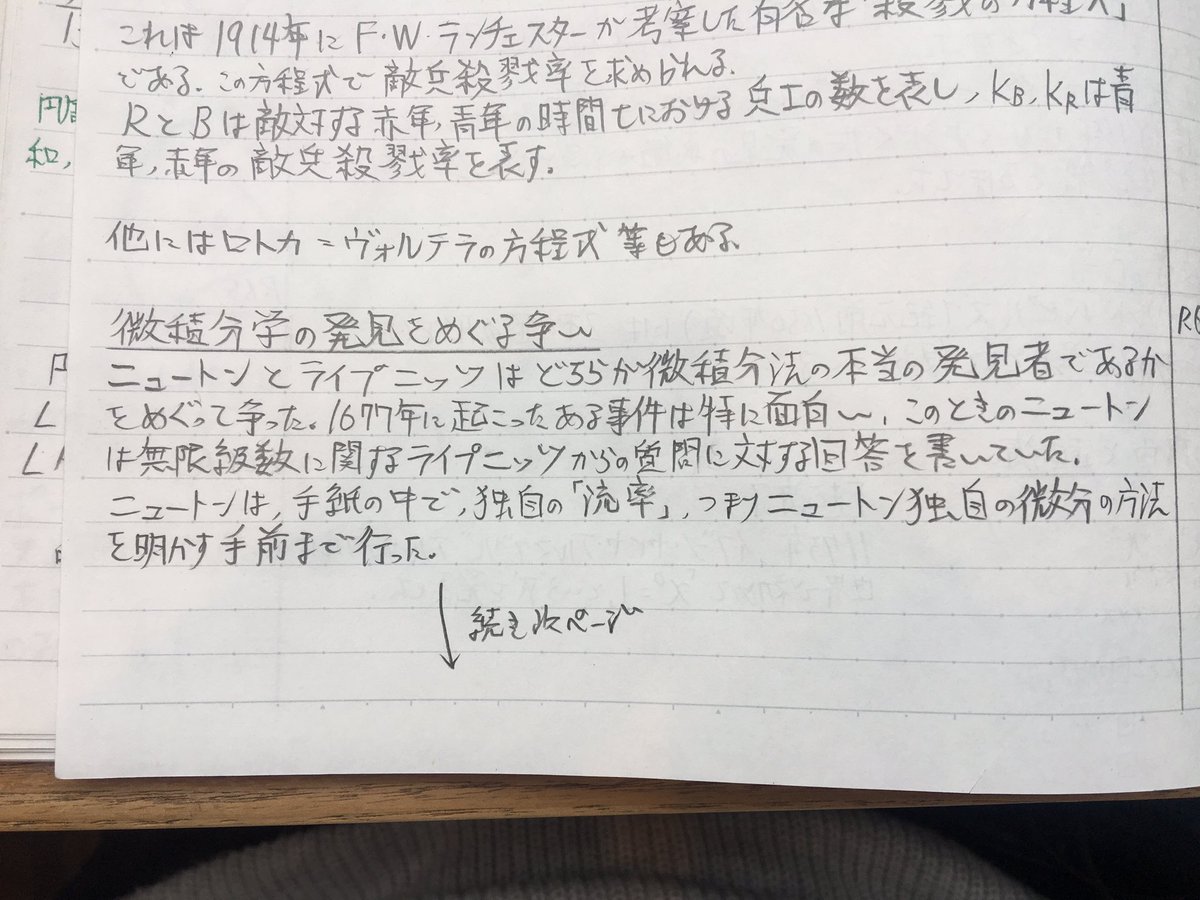 これは1914年にF・W・ランチェスターが考察した有名な「殺戮の方程式」
である。この方程式で敵兵殺戮率を求められる。
RとBは敵対する赤軍,青軍の時間tにおける兵士の数を表し,KB,KRは青
軍,赤軍の敵兵殺戮率を表す。
他にはロトカ=ヴォルテラの方程式等もある。
微積分学の発見をめぐる争い
ニュートンとライプニッツはどちらが微積分法の本当の発見者であるか
をめぐって争った。1677年に起こったある事件は特に面白い,このときのニュートン
は無限級数に関するライプニッツからの質問に対する回答を書いていた。
ニュートンは,手紙の中で,独自の「流率」,つまりニュートン独自の微分の方法
を明かす手前まで行った。
続き次ページ